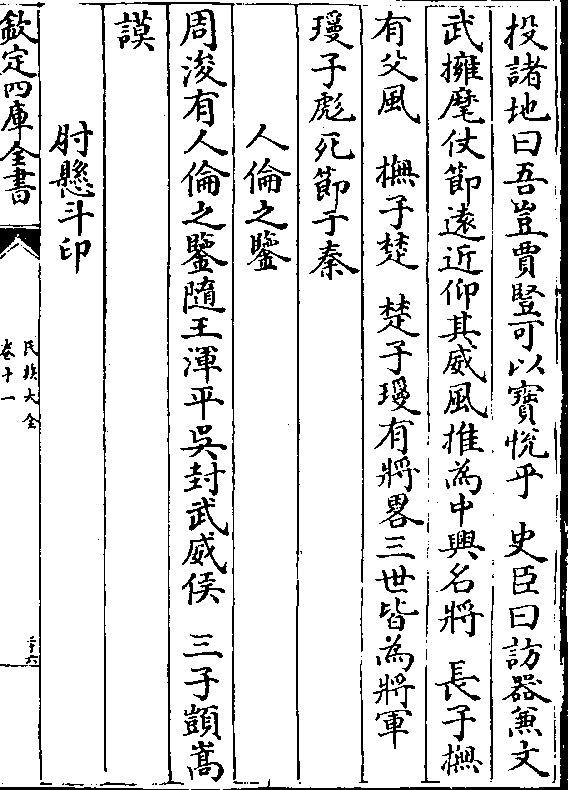 投諸地曰吾豈賈豎可以寶悅乎 史臣曰訪器兼文
武擁麾仗節遠近仰其威風推為中興名將 長子撫
有父風 撫子楚 楚子瓊有將畧三世皆為將軍
瓊子彪死節于秦
人倫之鑒
周浚有人倫之鑒隨王渾平吳封武威侯 三子顗嵩
謨
肘懸斗印
欽定四庫全書
氏族大全
卷十一
二十六